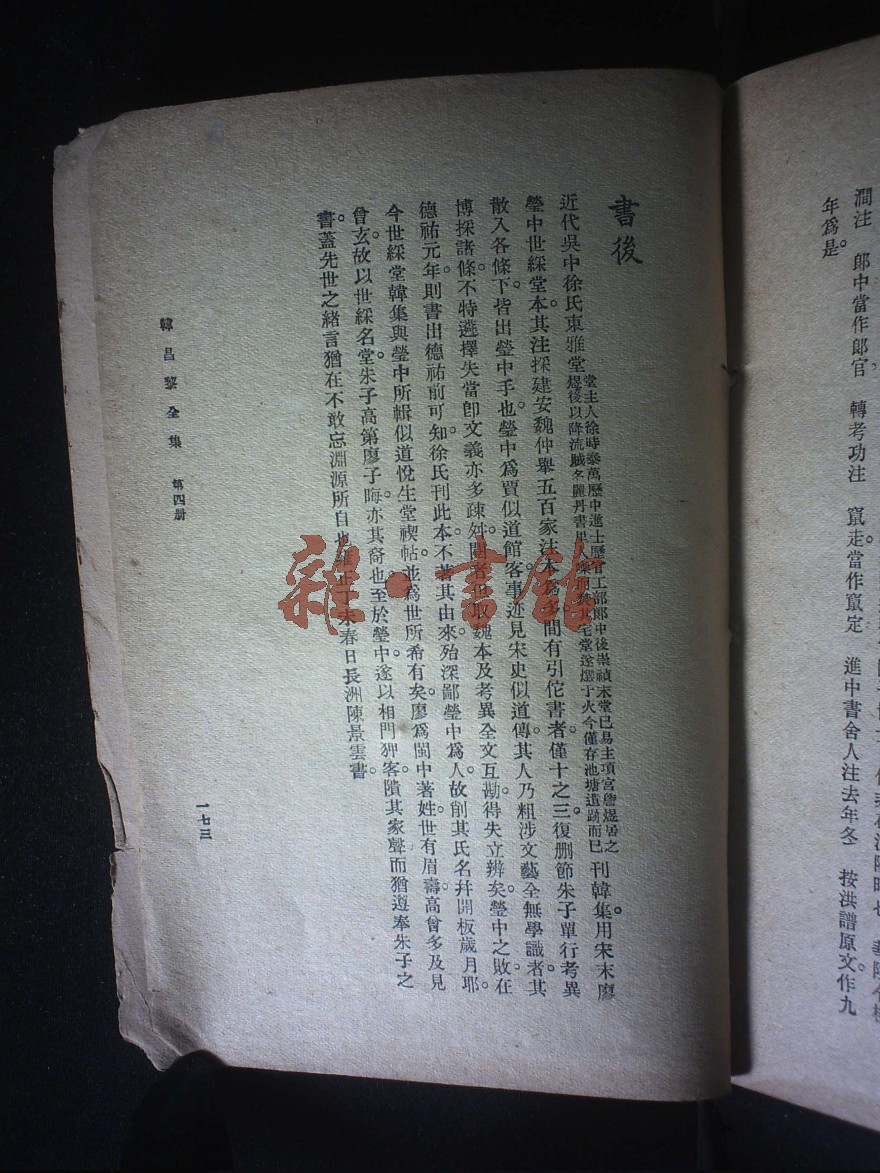 澗注　郎中當作郎官　轉考功注　竄走當作竄定　進中書舍人注去年冬　按洪譜原文作九
年爲是。
書後
近代吳中徐氏東雅堂
堂主人徐時泰萬歷中進士歷官工部郎中後崇禎末堂已易主項宮詹煜居之
煜後以降流賊名麗丹書里
其宅堂遂燬于火今僅存池塘遺跡而已
刊韓集。用宋末廖
瑩中世綵堂本。其注採建安魏仲舉五百家注本爲多。間有引佗書者。僅十之三。復刪節朱子單行考異
散入各條下。皆出瑩中手也。瑩中爲賈似道館客。事迹見宋史似道傳。其人乃粗涉文藝全無學識者。其
博採諸條。不特遴擇失當。卽文義亦多疎舛。閱者但取魏本及考異全文互勘。得失立辨矣。瑩中之敗。在
德祐元年。則書出德祐前可知。徐氏刊此本。不著其由來。殆深鄙瑩中爲人。故削其氏名幷開板歲月耶。
今世綵堂韓集與瑩中所輯似道悅生堂禊帖。並爲世所希有矣。廖爲閩中著姓。世有眉壽。高曾多及見
曾玄。故以世綵名堂。朱子高第廖子晦。亦其裔也。至於瑩中。遂以相門狎客。隤其家聲。而猶遵奉朱子之
書。蓋先世之緒言猶在。不敢忘淵源所自也。雍正丁未春日長洲陳景雲書。
韓昌黎全集　第四册
一七三
雜·書館